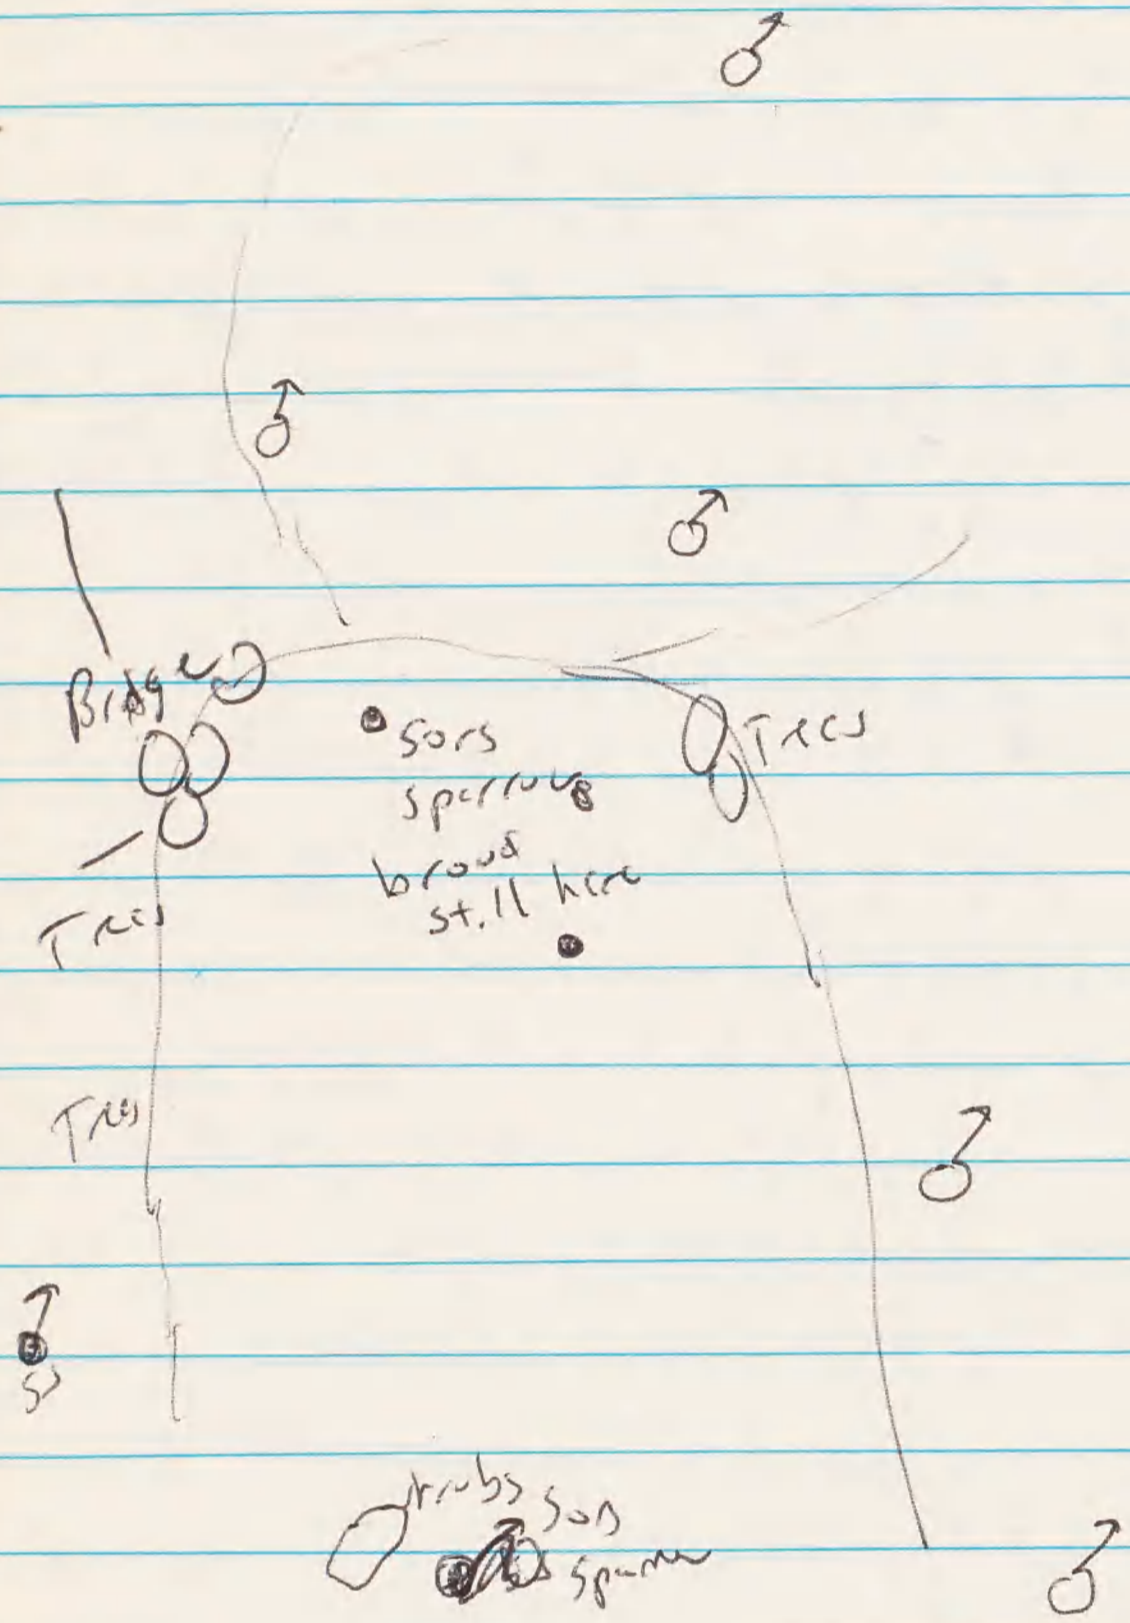 ♂
♂
♂
Bridge
Trees
song
sparrow
brood
still here
Trees
Trees
♂
♂
SS
shrubs
song
sparrow
♂